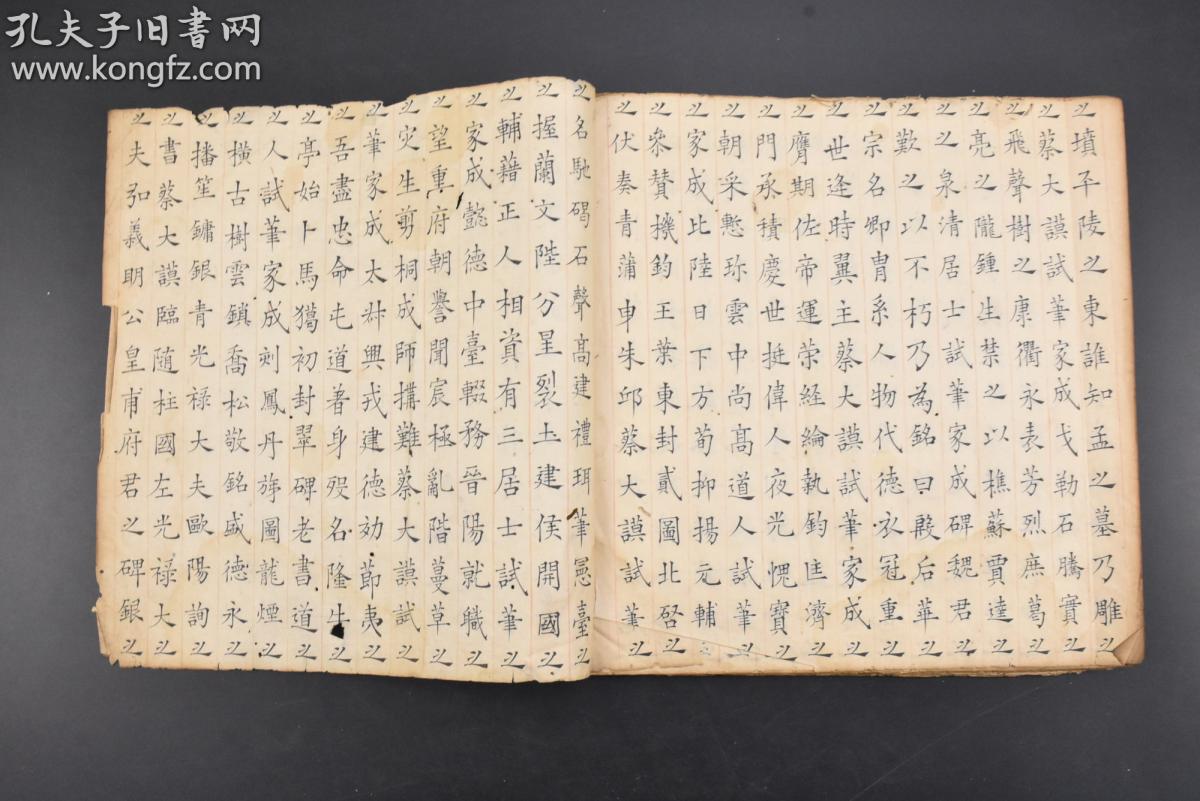 孔夫子旧书网
www.kongfz.com
之墳平陵之東誰知孟之墓乃雕之
之蔡大謨試筆家成戈勒石騰實之
之飛聲樹之康衢永表芳烈庶葛之
之亮之隴鍾生禁之以樵蘇賈逵之
之之泉清居士試筆家成碑魏君之
之歎之以不朽乃為銘曰殷后華之
之宗名卿冑系人物代德衣冠重之
之世逢時翼主蔡大謨試筆家成之
之膺期佐帝運荣経綸執鈞匡濟之
之門承積慶世挺偉人夜光愧寶之
之朝采慙珎雲中尚髙道人試筆之
之家成比陸日下方荀抑揚元輔之
之叅贊機鈞王葉東封貳圖北啓之
之伏奏青蒲申朱邱蔡大謨試筆
之名馳碣石聲髙建禮珥筆憲臺之
之握蘭文陛分星裂土建侯開國之
之輔藉正人相資有三居士試筆之
之家成懿德中臺輟務晉陽就職之
之望重府朝譽聞宸極亂階蔓草之
之灾生剪桐成師搆難蔡大謨試之
之筆家成太叔興戎建德効節夷之
之吾盡忠命屯道著身殁名隆牛之
之亭始卜馬獦初封翠碑老書道之
之人試筆家成刻鳳丹斾圖龍煙之
之横古樹雲鎖喬松敬銘盛德永之
之播笙鏞銀青光禄大夫歐陽詢之
之書蔡大謨臨随柱國左光禄大之
之夫弘義明公皇甫府君之碑銀之